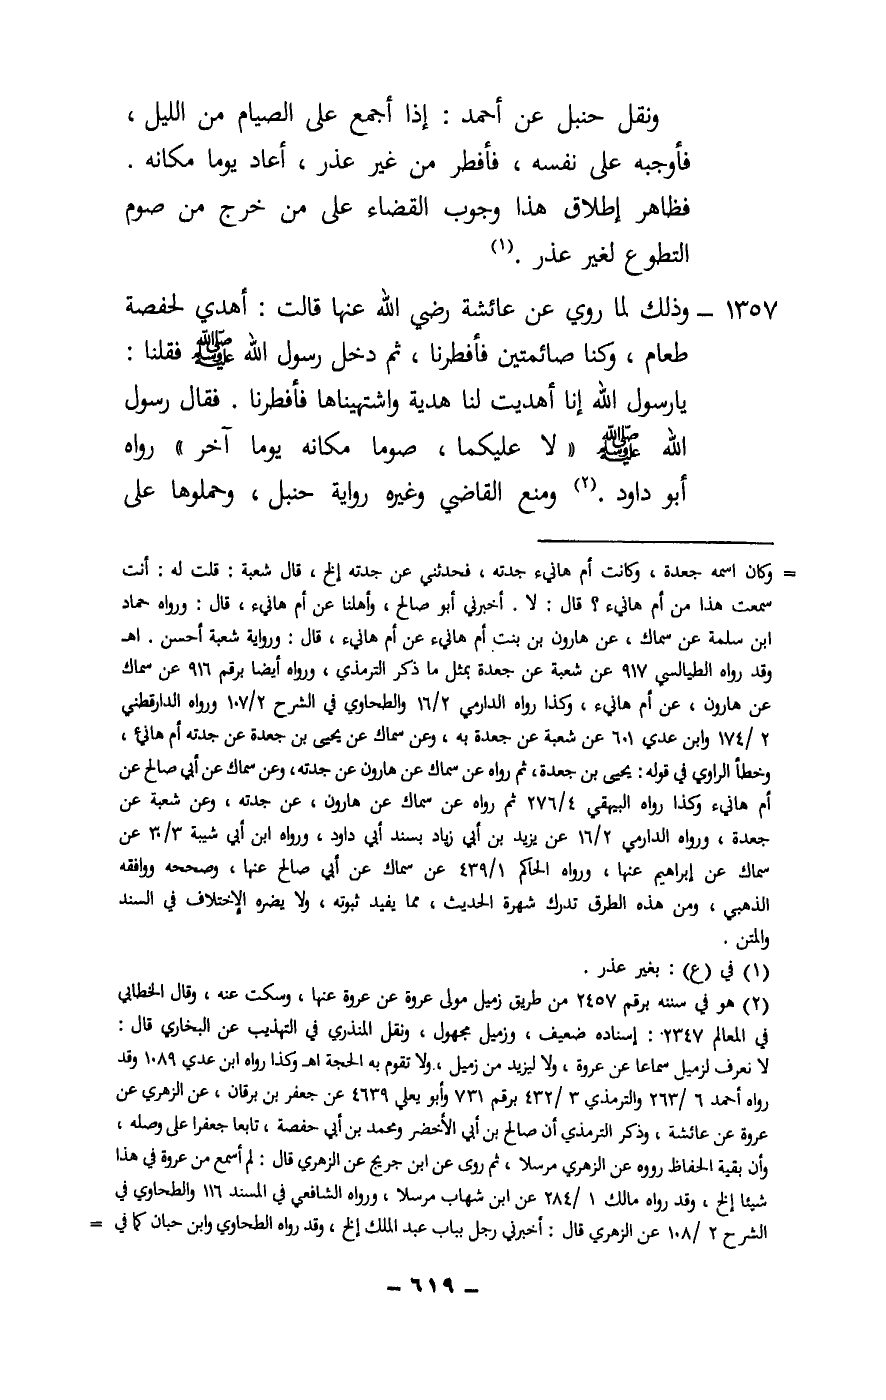 ونقل حنبل عن أحمد : إذا أجمع على الصيام من الليل ،
فأوجبه على نفسه ، فأفطر من غير عذر ، أعاد يوما مكانه .
فظاهر إطلاق هذا وجوب القضاء على من خرج من صوم
التطوع لغير عذر .(١)
١٣٥٧ – وذلك لما روي عن عائشة رضي الله عنها قالت : أهدي لحفصة
طعام ، وكنا صائمتين فأفطرنا ، ثم دخل رسول الله ﷺ فقلنا :
يارسول الله إنا أهديت لنا هدية واشتهيناها فأفطرنا . فقال رسول
الله ﷺ « لا عليكما ، صوما مكانه يوما آخر » رواه
أبو داود .(٢) ومنع القاضي وغيره رواية حنبل ، وحملوها على
= وكان اسمه جعدة ، وكانت أم هانيء جدته ، فحدثني عن جدته إلخ ، قال شعبة : قلت له : أنت
سمعت هذا من أم هانيء ؟ قال : لا . أخبرني أبو صالح ، وأهلنا عن أم هانيء ، قال : ورواه حماد
ابن سلمة عن سماك ، عن هارون بن بنت أم هانيء عن أم هانيء ، قال : ورواية شعبة أحسن . اهـ
وقد رواه الطيالسي ٩١٧ عن شعبة عن جعدة بمثل ما ذكر الترمذي ، ورواه أيضا برقم ٩١٦ عن سماك
عن هارون ، عن أم هانيء ، وكذا رواه الدارمي ١٦/٢ والطحاوي في الشرح ١٠٧/٢ ورواه الدارقطني
٢ /١٧٤ وابن عدي ٦٠١ عن شعبة عن جعدة به ، وعن سماك عن يحيى بن جعدة عن جدته أم هانئ ،
وخطأ الراوي في قوله : يحيى بن جعدة، ثم رواه عن سماك عن هارون عن جدته، وعن سماك عن أبي صالح عن
أم هانيء وكذا رواه البيهقي ٢٧٦/٤ ثم رواه عن سماك عن هارون ، عن جدته ، وعن شعبة عن
جعدة ، ورواه الدارمي ١٦/٢ عن يزيد بن أبي زياد بسند أبي داود ، ورواه ابن أبي شيبة ٣٠/٣ عن
سماك عن إبراهيم عنها ، ورواه الحاكم ٤٣٩/١ عن سماك عن أبي صالح عنها ، وصححه ووافقه
الذهبي ، ومن هذه الطرق تدرك شهرة الحديث ، مما يفيد ثبوته ، ولا يضره الإختلاف في السند
والمتن .
(١) في (ع) : بغير عذر .
(٢) هو في سننه برقم ٢٤٥٧ من طريق زميل مولى عروة عن عروة عنها ، وسكت عنه ، وقال الخطابي
في المعالم ٢٣٤٧ : إسناده ضعيف ، وزميل مجهول ، ونقل المنذري في التهذيب عن البخاري قال :
لا نعرف لزميل سماعا عن عروة ، ولا ليزيد من زميل ، ولا تقوم به الحجة اهـ وكذا رواه ابن عدي ١٠٨٩ وقد
رواه أحمد ٦ /٢٦٣ والترمذي ٣ /٤٣٢ برقم ٧٣١ وأبو يعلي ٤٦٣٩ عن جعفر بن برقان ، عن الزهري عن
عروة عن عائشة ، وذكر الترمذي أن صالح بن أبي الأخضر ومحمد بن أبي حفصة ، تابعا جعفرا على وصله ،
وأن بقية الحفاظ رووه عن الزهري مرسلا ، ثم روى عن ابن جريج عن الزهري قال : لم أسمع من عروة في هذا
شيئا إلخ ، وقد رواه مالك ١ /٢٨٤ عن ابن شهاب مرسلا ، ورواه الشافعي في المسند ١١٦ والطحاوي في
الشرح ٢ /١٠٨ عن الزهري قال : أخبرني رجل بباب عبد الملك إلخ ، وقد رواه الطحاوي وابن حبان كما في =
– ٦١٩ –